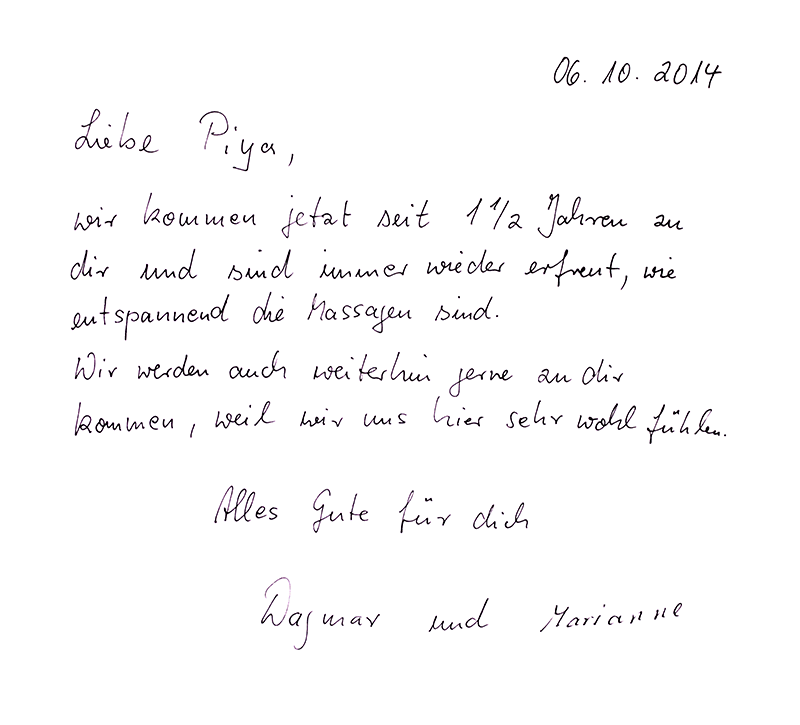 06.10.2014
Liebe Piya,
wir kommen jetzt seit 1 1/2 Jahren zu
dir und sind immer wieder erfreut, wie
entspannend die Massagen sind.
Wir werden auch weiterhin gerne zu dir
kommen, weil wir uns hier sehr wohl fühlen.
Alles Gute für dich
Dagmar und Marianne